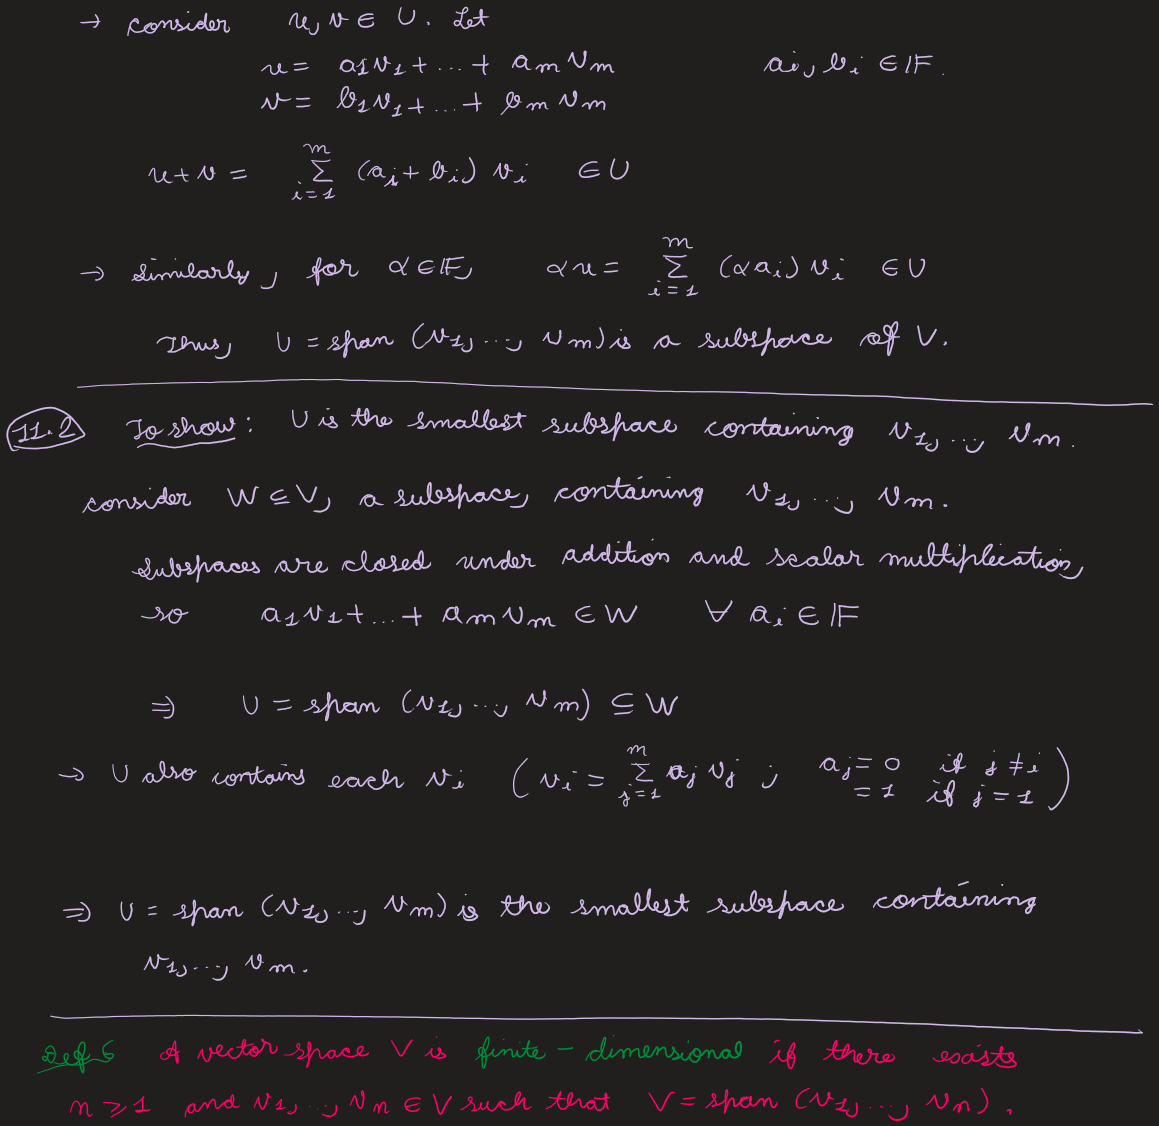 → consider u, v ∈ U. Let
u = a1v1 + ... + amvm ai, bi ∈ F.
v = b1v1 + ... + bmvm
u+v = ∑_{i=1}^{m} (ai + bi) vi ∈ U
→ Similarly, for α ∈ F, αu = ∑_{i=1}^{m} (αai) vi ∈ U
Thus, U = span (v1, ..., vm) is a subspace of V.
11.2 To show: U is the smallest subspace containing v1, ..., vm.
consider W ⊆ V, a subspace, containing v1, ..., vm.
Subspaces are closed under addition and scalar multiplication,
so a1v1 + ... + amvm ∈ W ∀ ai ∈ F
⇒ U = span (v1, ..., vm) ⊆ W
→ U also contains each vi ( vi = ∑_{j=1}^{m} aj vj ; aj = 0 if j ≠ i
= 1 if j = 1 )
⇒ U = span (v1, ..., vm) is the smallest subspace containing
v1, ..., vm.
Def 6 A vector space V is finite - dimensional if there exists
n ≥ 1 and v1, ..., vn ∈ V such that V = span (v1, ..., vn).